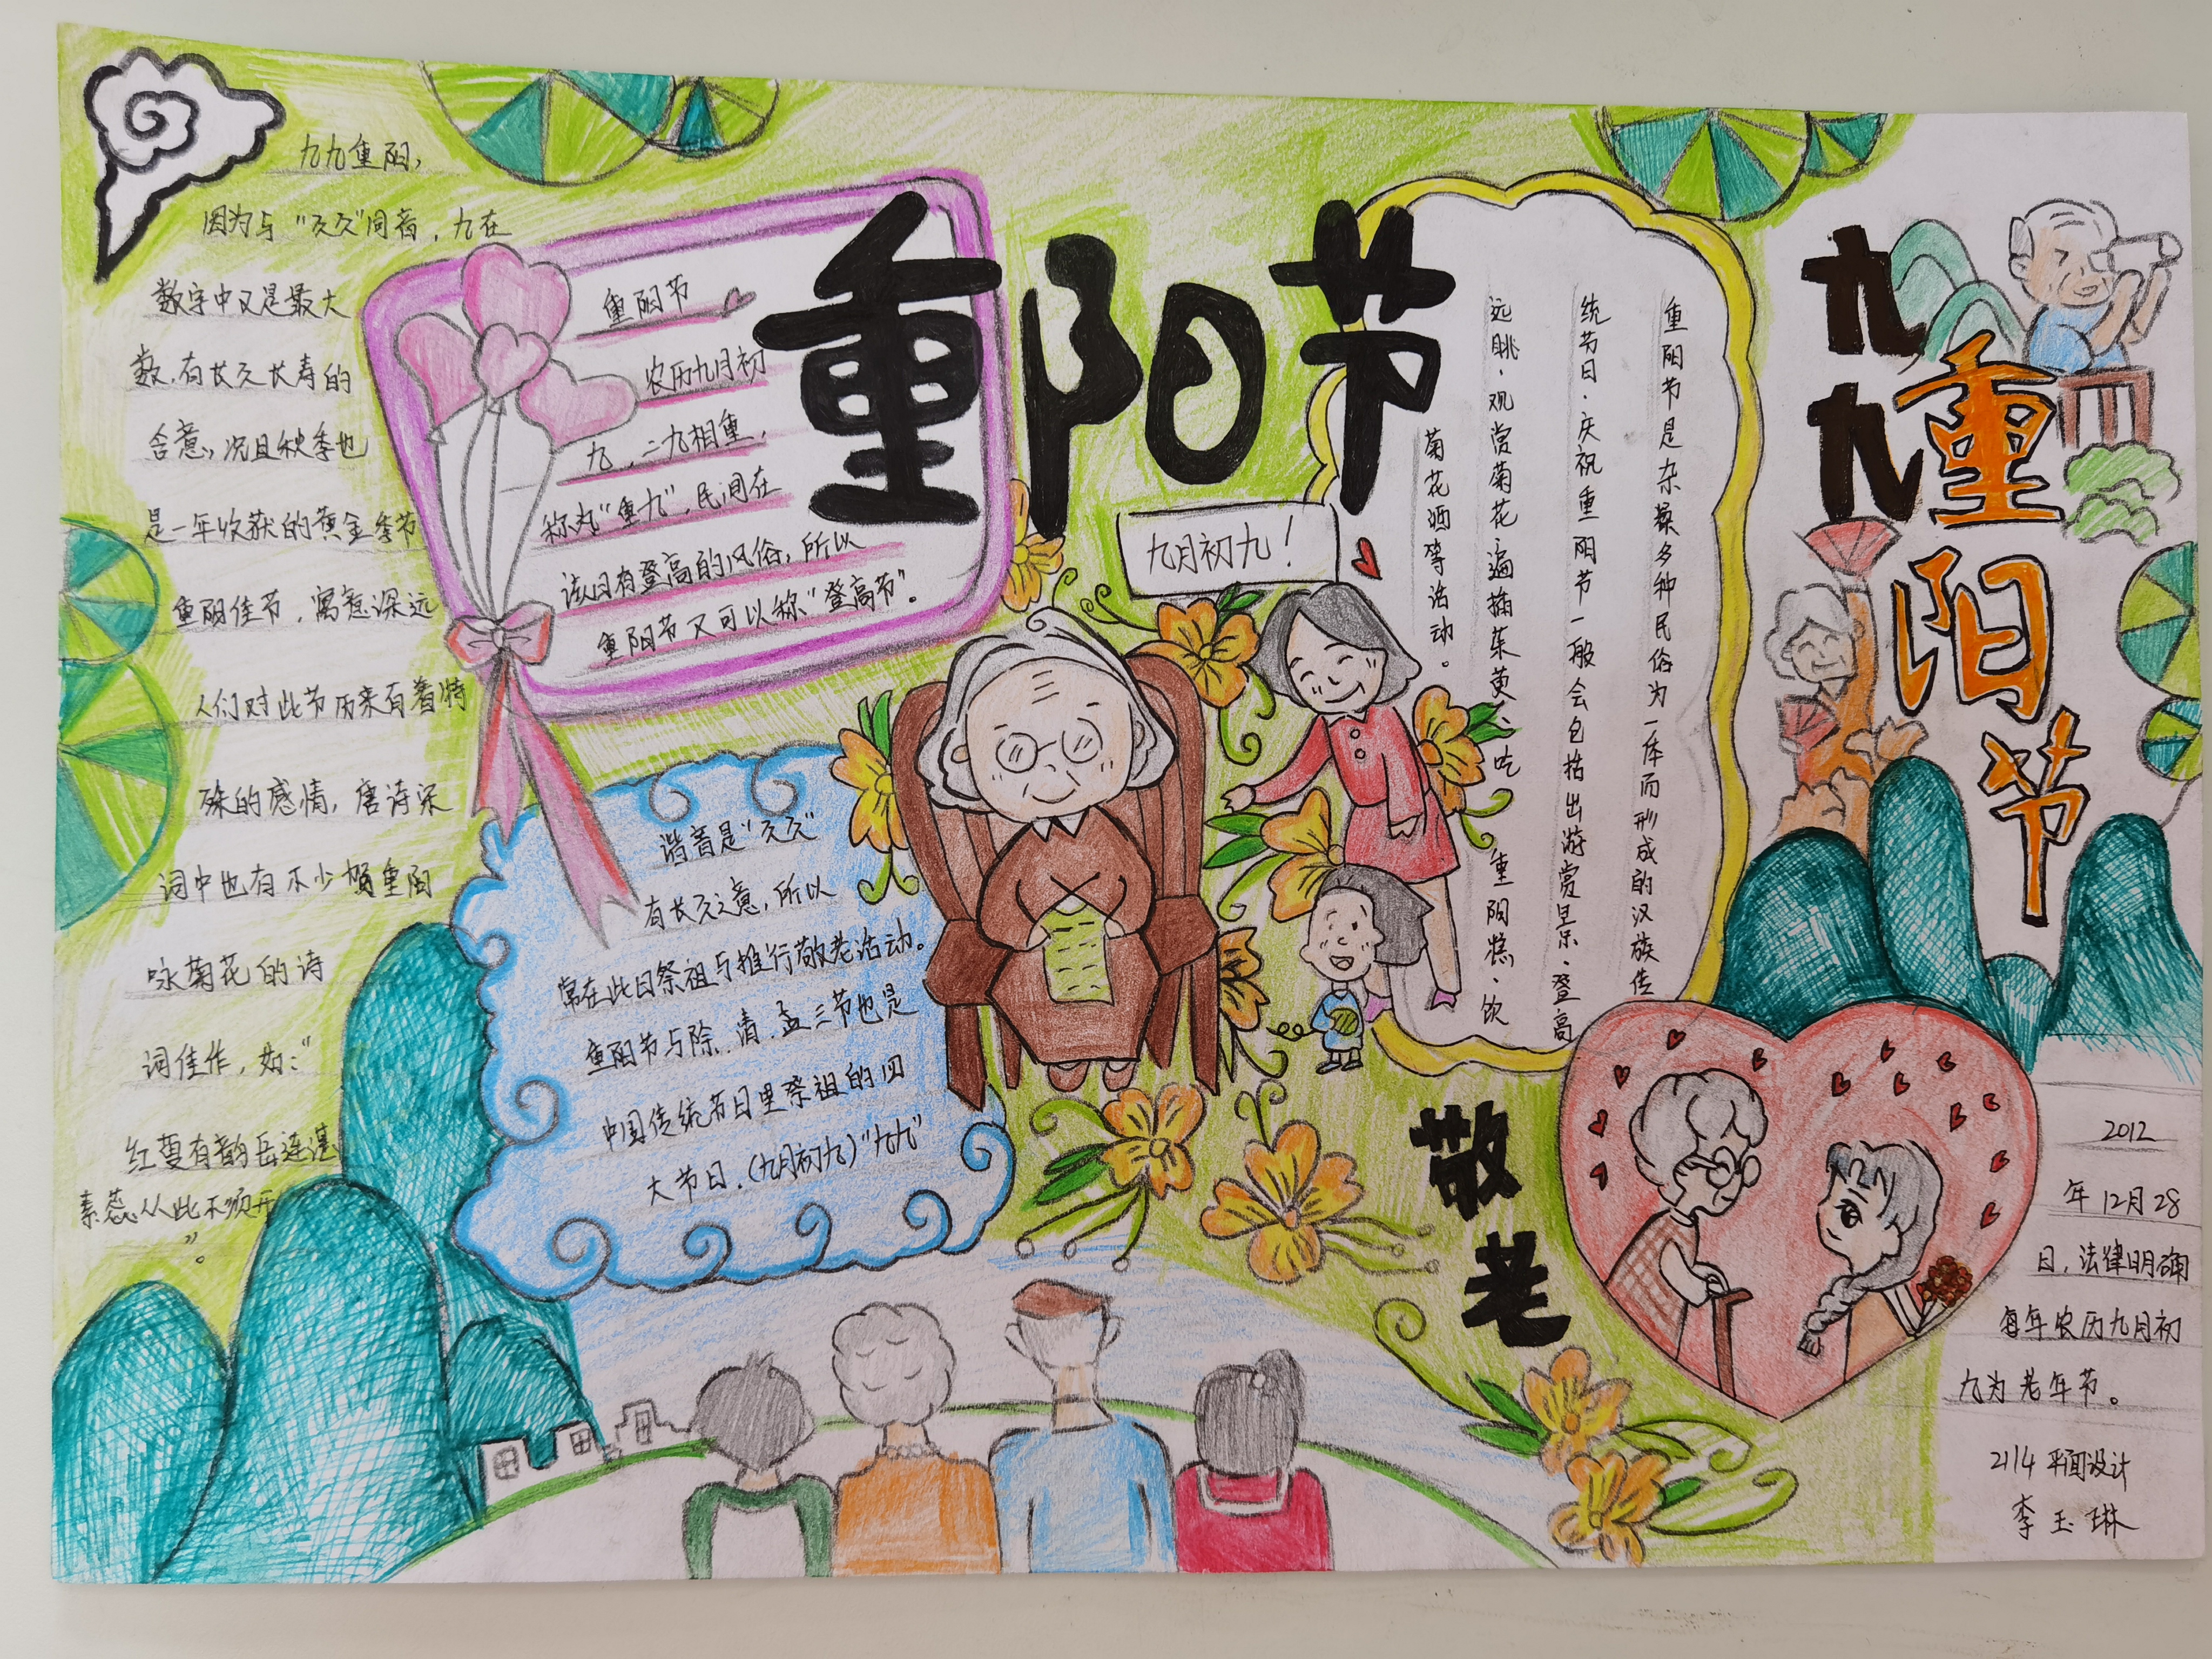 重阳节
九九
重阳节
九九重阳，
因为与“久久”同音，九在
数字中又是最大
数，有长久长寿的
含意，况且秋季也
是一年收获的黄金季节
重阳佳节，寓意深远
人们对此节历来有着特
殊的感情，唐诗宋
词中也有不少贺重阳
咏菊花的诗
词佳作，如：“
红萼有韵岳连湛
素蕊从此不须开
”。
重阳节
农历九月初
九，二九相重，
称为“重九”，民间在
该日有登高的风俗，所以
重阳节又可以称“登高节”。
谐音是“久久”
有长久之意，所以
常在此日祭祖与推行敬老活动。
重阳节与除、清、盂三节也是
中国传统节日里祭祖的四
大节日．(九月初九)“九九”
九月初九！
重阳节是杂糅多种民俗为一体而形成的汉族传
统节日．庆祝重阳节一般会包括出游赏景、登高
远眺．观赏菊花遍插茱萸、吃重阳糕、饮
菊花酒等活动。
敬老
2012
年12月28
日，法律明确
每年农历九月初
九为老年节。
2114 平面设计
李玉琳